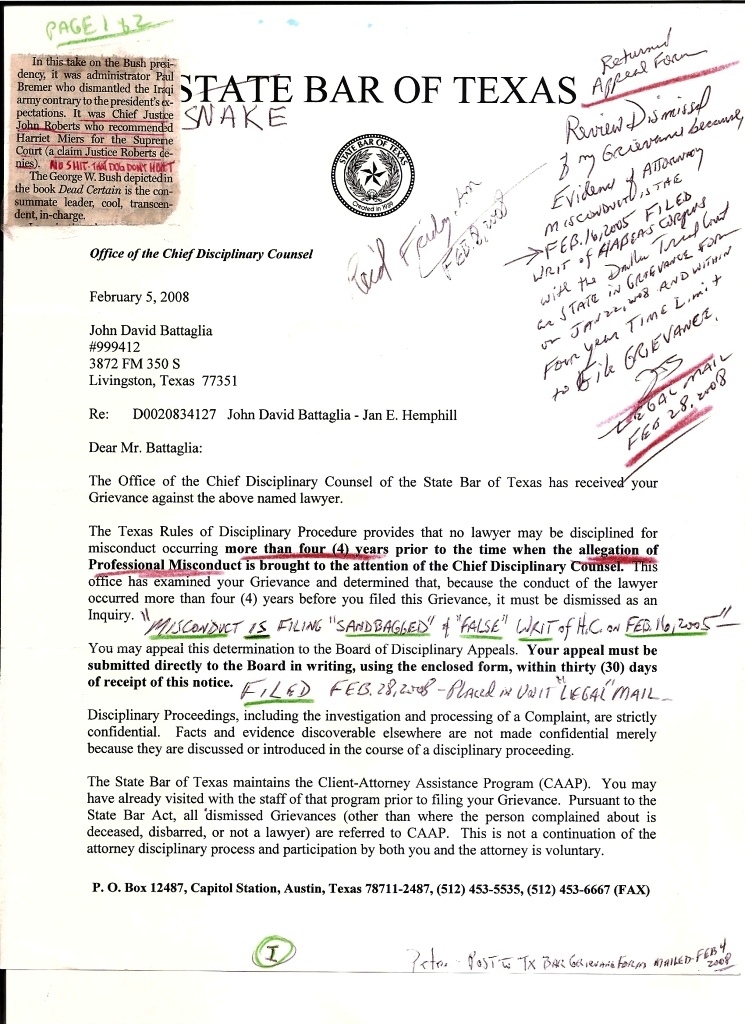 PAGE 1 & 2
In this take on the Bush presi-
dency, it was administrator Paul
Bremer who dismantled the Iraqi
army contrary to the president's ex-
pectations. It was Chief Justice
John Roberts who recommended
Harriet Miers for the Supreme
Court (a claim Justice Roberts de-
nies). NO SHIT. THAT DOG DON'T HUNT
The George W. Bush depicted in
the book Dead Certain is the con-
summate leader, cool, transcen-
dent, in-charge.
STATE BAR OF TEXAS
SNAKE
STATE BAR OF TEXAS
Created in 1939
Returned
Appeal Form
Review Dismissed
of my Grievance because,
Evidence of Attorney
MISCONDUCT IS THE
FEB. 16, 2005 FILED
WRIT of HABEAS CORPUS
with the Dallas Trial Court
as STATE in GRIEVANCE FORM
on JAN 22, 2008 AND WITHIN
Four year TIME Limit
to File GRIEVANCE.
LEGAL MAIL
FEB 28, 2008
Rec'd Friday, am
FEB. 8, 2008
Office of the Chief Disciplinary Counsel
February 5, 2008
John David Battaglia
#999412
3872 FM 350 S
Livingston, Texas 77351
Re: D0020834127 John David Battaglia - Jan E. Hemphill
Dear Mr. Battaglia:
The Office of the Chief Disciplinary Counsel of the State Bar of Texas has received your
Grievance against the above named lawyer.
The Texas Rules of Disciplinary Procedure provides that no lawyer may be disciplined for
misconduct occurring more than four (4) years prior to the time when the allegation of
Professional Misconduct is brought to the attention of the Chief Disciplinary Counsel. This
office has examined your Grievance and determined that, because the conduct of the lawyer
occurred more than four (4) years before you filed this Grievance, it must be dismissed as an
Inquiry. "MISCONDUCT IS FILING "SANDBAGGED" & "FALSE" WRIT of H.C. ON FEB. 16, 2005"
You may appeal this determination to the Board of Disciplinary Appeals. Your appeal must be
submitted directly to the Board in writing, using the enclosed form, within thirty (30) days
of receipt of this notice. FILED FEB. 28, 2008 - PLACED IN UNIT "LEGAL" MAIL
Disciplinary Proceedings, including the investigation and processing of a Complaint, are strictly
confidential. Facts and evidence discoverable elsewhere are not made confidential merely
because they are discussed or introduced in the course of a disciplinary proceeding.
The State Bar of Texas maintains the Client-Attorney Assistance Program (CAAP). You may
have already visited with the staff of that program prior to filing your Grievance. Pursuant to the
State Bar Act, all dismissed Grievances (other than where the person complained about is
deceased, disbarred, or not a lawyer) are referred to CAAP. This is not a continuation of the
attorney disciplinary process and participation by both you and the attorney is voluntary.
P. O. Box 12487, Capitol Station, Austin, Texas 78711-2487, (512) 453-5535, (512) 453-6667 (FAX)
I
Peter - POST to TX BAR GRIEVANCE FORMS MAILED FEB 4
2008